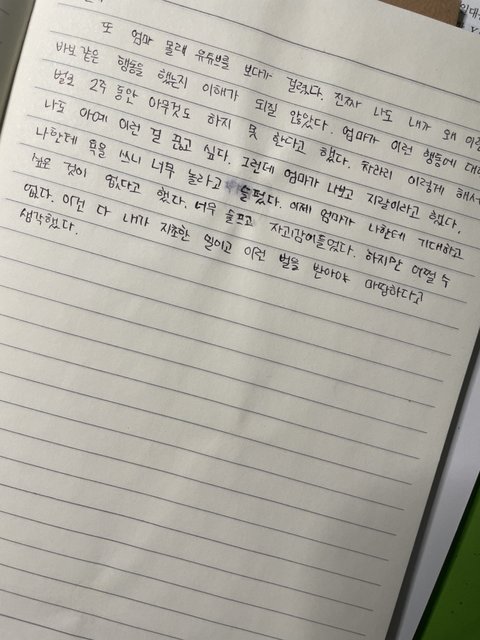 또 엄마 몰래 유튜브를 보다가 걸렸다. 진짜 나도 내가 왜 이런
바보 같은 행동을 했는지 이해가 되질 않았다. 엄마가 이런 행동에 대한
벌로 2주 동안 아무것도 하지 못 한다고 했다. 차라리 이렇게 해서
나도 아예 이런 걸 끊고 싶다. 그런데 엄마가 나보고 지랄이라고 했다.
나한테 욕을 쓰니 너무 놀라고 슬펐다. 이제 엄마가 나한테 기대하고
싶은 것이 없다고 했다. 너무 슬프고 자괴감이 들었다. 하지만 어쩔 수
없다. 이건 다 내가 자초한 일이고 이런 벌을 받아야 마땅하다고
생각했다.